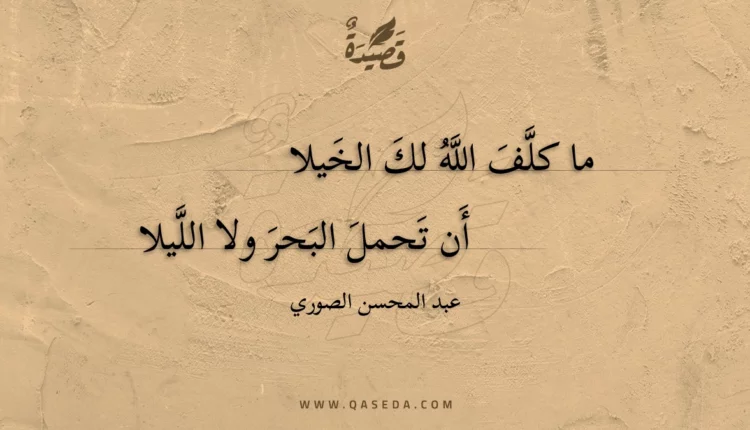 قَصِيْدَةٌ
ما كلَّفَ اللَّهُ لكَ الخَيلا
أَن تَحملَ البَحرَ ولا اللَّيلا
عبد المحسن الصوري
WWW.QASEDA.COM